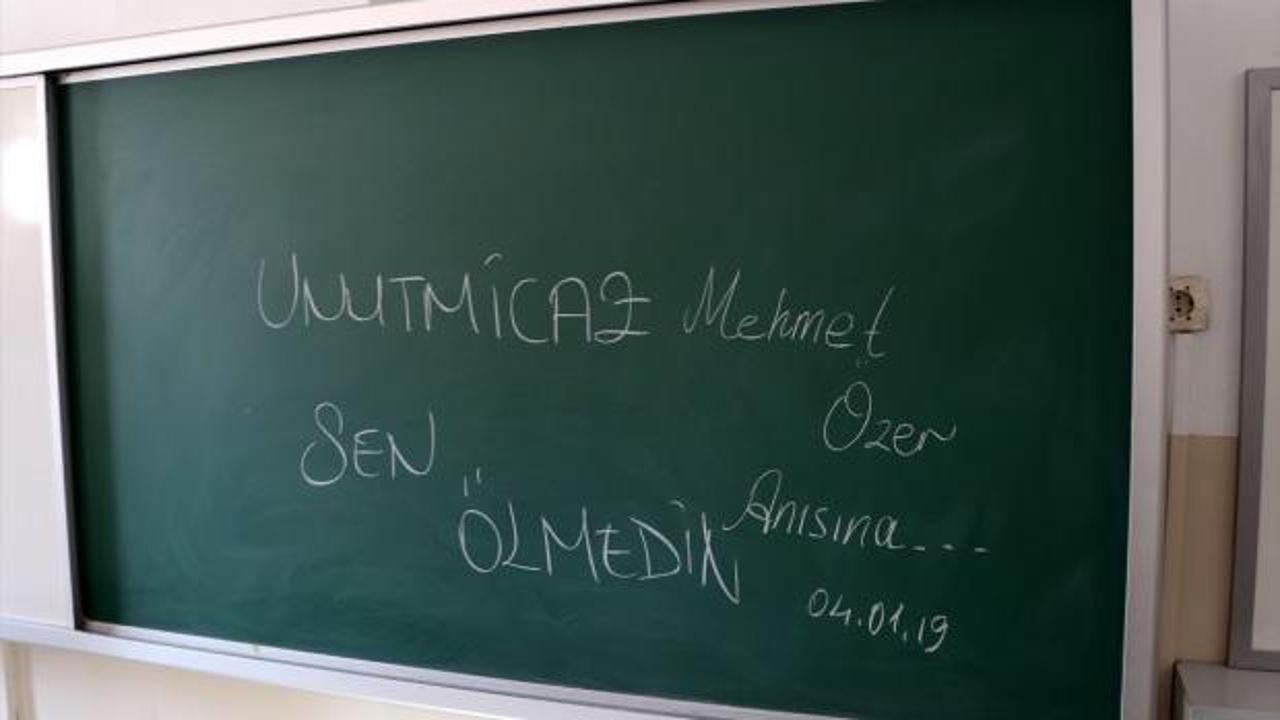 UNUTMİCAZ Mehmet
Özer
SEN
ÖLMEDİN Anısına...
04.01.19